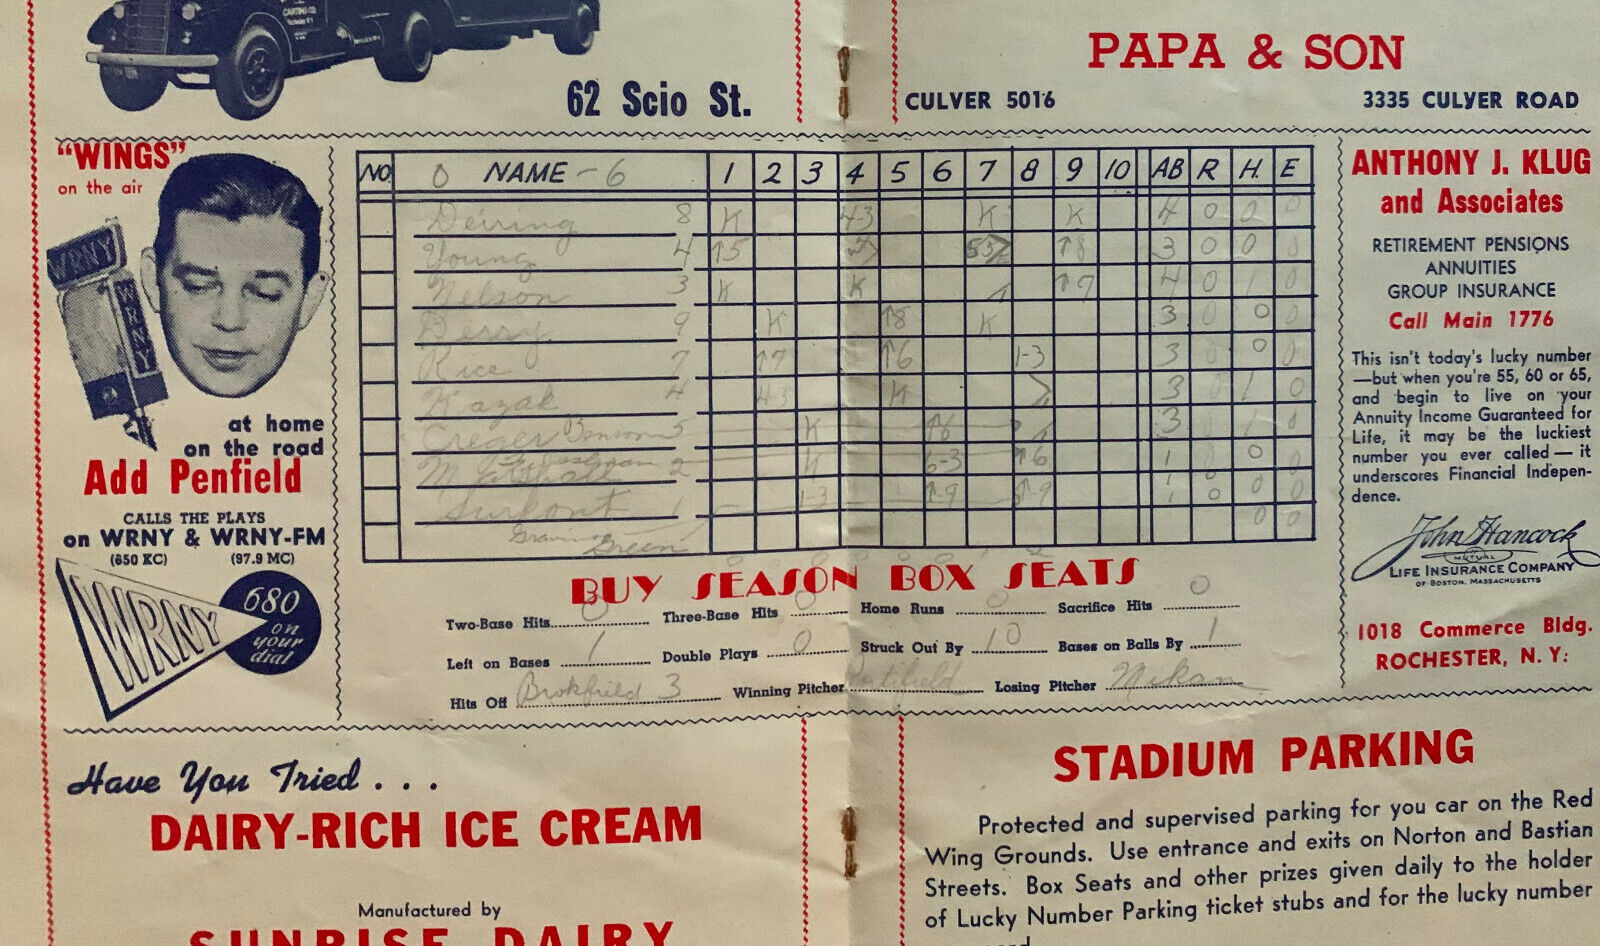 CARTING CO.
62 Scio St.
PAPA & SON
CULVER 5016 3335 CULVER ROAD
"WINGS"
on the air
WRNY
WRNY
at home
on the road
Add Penfield
CALLS THE PLAYS
on WRNY & WRNY-FM
(680 KC) (97.9 MC)
WRNY
680
on
your
dial
NO. 0 NAME - 6 1 2 3 4 5 6 7 8 9 10 AB R H. E
Deiring 8 K 4-3 K K 4 0 0 0
Young 4 ↑5 ↑8 3 0 0 0
Nelson 3 K K ↑9 4 0 1 0
Derry 9 K ↑8 K 3 0 0 0
Rice 7 ↑7 ↑6 1-3 3 0 0 0
Kazak 4 4-3 K 3 1 0
Creger Benson 5 K ↑6 3 1 0
2 K 6-3 ↑6 1 0 0
1 1-3 ↑9 ↑9 1 0 0 0
Green 0 0
BUY SEASON BOX SEATS
Two-Base Hits 0 Three-Base Hits 0 Home Runs 0 Sacrifice Hits 0
Left on Bases 1 Double Plays 0 Struck Out By 10 Bases on Balls By 1
Hits Off Brokfield 3 Winning Pitcher Losing Pitcher Mikan
ANTHONY J. KLUG
and Associates
RETIREMENT PENSIONS
ANNUITIES
GROUP INSURANCE
Call Main 1776
This isn't today's lucky number
—but when you're 55, 60 or 65,
and begin to live on your
Annuity Income Guaranteed for
Life, it may be the luckiest
number you ever called — it
underscores Financial Indepen-
dence.
John Hancock
MUTUAL
LIFE INSURANCE COMPANY
OF BOSTON, MASSACHUSETTS
1018 Commerce Bldg.
ROCHESTER, N. Y:
Have You Tried . . .
DAIRY-RICH ICE CREAM
Manufactured by
SUNRISE DAIRY
STADIUM PARKING
Protected and supervised parking for you car on the Red
Wing Grounds. Use entrance and exits on Norton and Bastian
Streets. Box Seats and other prizes given daily to the holder
of Lucky Number Parking ticket stubs and for the lucky number